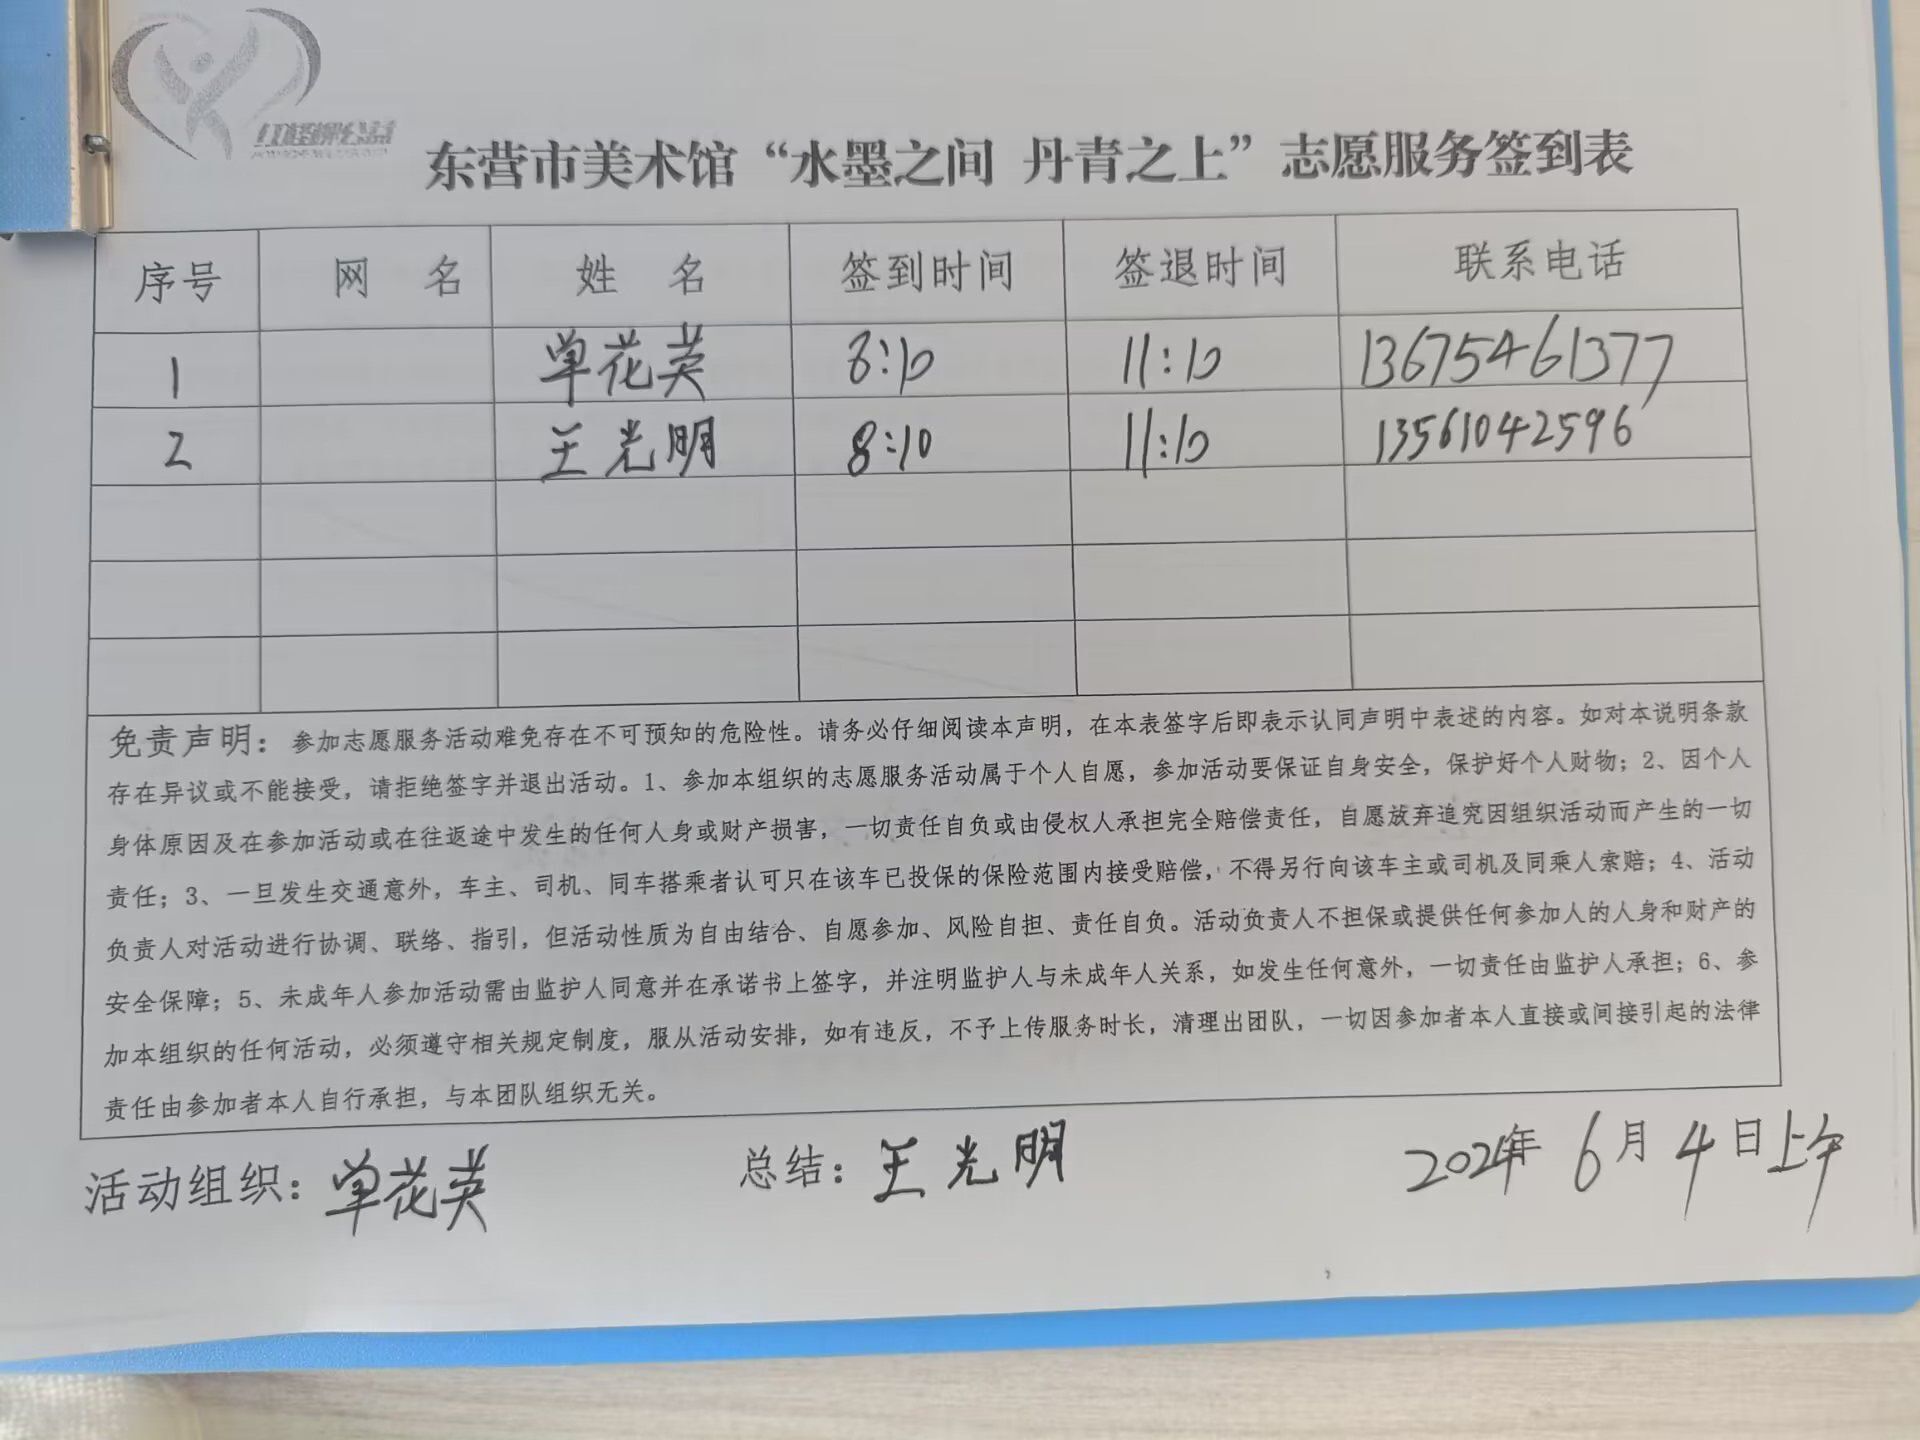 红丝带公益
东营市美术馆“水墨之间 丹青之上”志愿服务签到表
序号 网 名 姓 名 签到时间 签退时间 联系电话
1 单花英 8:10 11:10 13675461377
2 王光明 8:10 11:10 13561042596
免责声明：参加志愿服务活动难免存在不可预知的危险性。请务必仔细阅读本声明，在本表签字后即表示认同声明中表述的内容。如对本说明条款
存在异议或不能接受，请拒绝签字并退出活动。1、参加本组织的志愿服务活动属于个人自愿，参加活动要保证自身安全，保护好个人财物；2、因个人
身体原因及在参加活动或在往返途中发生的任何人身或财产损害，一切责任自负或由侵权人承担完全赔偿责任，自愿放弃追究因组织活动而产生的一切
责任；3、一旦发生交通意外，车主、司机、同车搭乘者认可只在该车已投保的保险范围内接受赔偿，不得另行向该车主或司机及同乘人索赔；4、活动
负责人对活动进行协调、联络、指引，但活动性质为自由结合、自愿参加、风险自担、责任自负。活动负责人不担保或提供任何参加人的人身和财产的
安全保障；5、未成年人参加活动需由监护人同意并在承诺书上签字，并注明监护人与未成年人关系，如发生任何意外，一切责任由监护人承担；6、参
加本组织的任何活动，必须遵守相关规定制度，服从活动安排，如有违反，不予上传服务时长，清理出团队，一切因参加者本人直接或间接引起的法律
责任由参加者本人自行承担，与本团队组织无关。
活动组织：单花英 总结：王光明 2024年 6月 4日上午